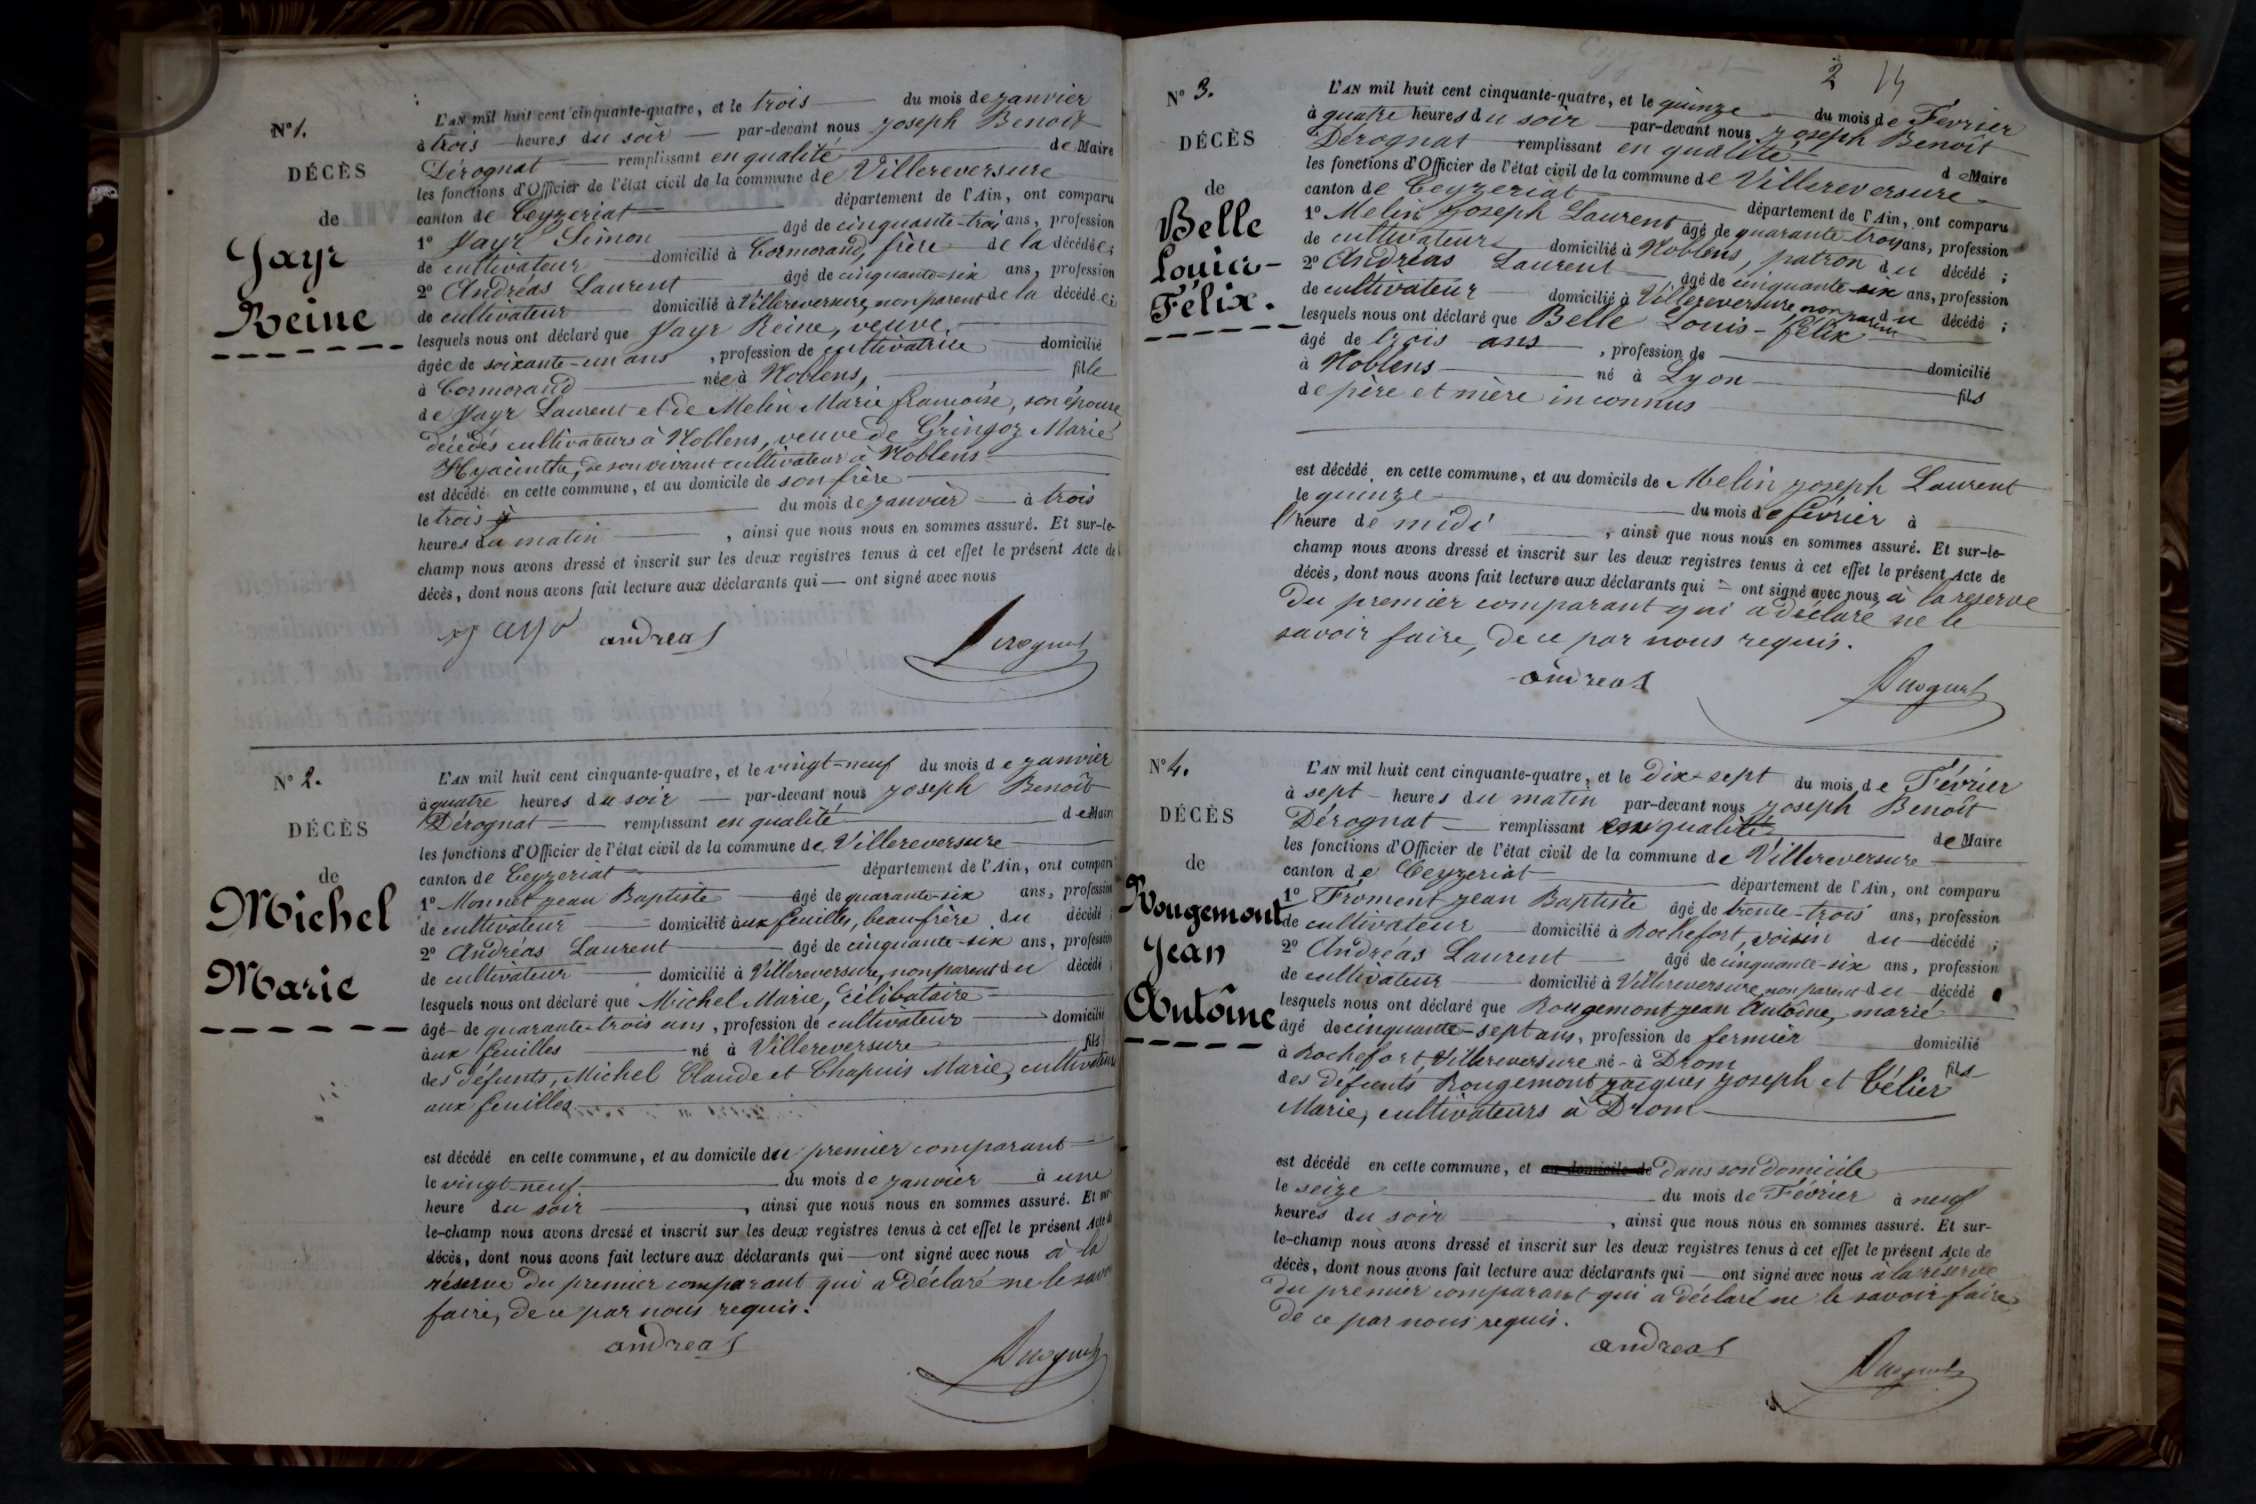 N° 1.
DÉCÈS
de
Jayr
Reine
L'AN mil huit cent cinquante-quatre, et le trois du mois de janvier
à trois heures du soir par-devant nous Joseph Benoit
Dérognat remplissant en qualité de Maire
les fonctions d'Officier de l'état civil de la commune de Villereversure
canton de Ceyzeriat département de l'Ain, ont comparu
1° Jayr Simon âgé de cinquante-trois ans, profession
de cultivateur domicilié à Cormorand, frère de la décédée;
2° Andréas Laurent âgé de cinquante-six ans, profession
de cultivateur domicilié à Villereversure, non parent de la décédée;
lesquels nous ont déclaré que Jayr Reine, veuve,
âgée de soixante-un ans, profession de cultivatrice domicilié
à Cormorand née à Noblens, fille
de Jayr Laurent et de Melin Marie françoise, son épouse
décédés cultivateurs à Noblens, veuve de Gringoz Marie
Hyacinthe, de son vivant cultivateur à Noblens
est décédé en cette commune, et au domicile de son frère
le trois du mois de janvier à trois
heures du matin, ainsi que nous nous en sommes assuré. Et sur-le-
champ nous avons dressé et inscrit sur les deux registres tenus à cet effet le présent Acte de
décès, dont nous avons fait lecture aux déclarants qui — ont signé avec nous
andreas Derognat
N° 2.
DÉCÈS
de
Michel
Marie
L'AN mil huit cent cinquante-quatre, et le vingt-neuf du mois de janvier
à quatre heures du soir par-devant nous Joseph Benoît
Dérognat remplissant en qualité de Maire
les fonctions d'Officier de l'état civil de la commune de Villereversure
canton de Ceyzeriat département de l'Ain, ont comparu
1° Monnet jean Baptiste âgé de quarante-six ans, profession
de cultivateur domicilié aux feuilles, beau-frère du décédé;
2° Andréas Laurent âgé de cinquante-six ans, profession
de cultivateur domicilié à Villereversure, non parent du décédé;
lesquels nous ont déclaré que Michel Marie, célibataire
âgé de quarante-trois ans, profession de cultivateur domicilié
aux feuilles né à Villereversure fils
des défunts, Michel Claude et Chapuis Marie, cultivateurs
aux feuilles
est décédé en cette commune, et au domicile du premier comparant
le vingt-neuf du mois de janvier à une
heure du soir, ainsi que nous nous en sommes assuré. Et sur-
le-champ nous avons dressé et inscrit sur les deux registres tenus à cet effet le présent Acte de
décès, dont nous avons fait lecture aux déclarants qui — ont signé avec nous à la
réserve du premier comparant qui a déclaré ne le savoir
faire, de ce par nous requis.
andreas Derognat
2 14
N° 3.
DÉCÈS
de
Belle
Louis-
Félix.
L'AN mil huit cent cinquante-quatre, et le quinze du mois de Février
à quatre heures du soir par-devant nous Joseph Benoît
Dérognat remplissant en qualité de Maire
les fonctions d'Officier de l'état civil de la commune de Villereversure
canton de Ceyzeriat département de l'Ain, ont comparu
1° Melin Joseph Laurent âgé de quarante-trois ans, profession
de cultivateur domicilié à Noblens, patron du décédé;
2° Andréas Laurent âgé de cinquante-six ans, profession
de cultivateur domicilié à Villereversure non parent du décédé;
lesquels nous ont déclaré que Belle Louis-félix
âgé de trois ans, profession de domicilié
à Noblens né à Lyon fils
de père et mère inconnus
est décédé en cette commune, et au domicile de Melin joseph Laurent
le quinze du mois de février à
l'heure de midi, ainsi que nous nous en sommes assuré. Et sur-le-
champ nous avons dressé et inscrit sur les deux registres tenus à cet effet le présent Acte de
décès, dont nous avons fait lecture aux déclarants qui — ont signé avec nous à la reserve
du premier comparant qui a déclaré ne le
savoir faire, de ce par nous requis.
andreas Derognat
N° 4.
DÉCÈS
de
Rougemont
Jean
Antoîne
L'AN mil huit cent cinquante-quatre, et le Dix-sept du mois de Février
à sept heures du matin par-devant nous Joseph Benoît
Dérognat remplissant en qualité de Maire
les fonctions d'Officier de l'état civil de la commune de Villereversure
canton de Ceyzeriat département de l'Ain, ont comparu
1° Froment jean Baptiste âgé de trente-trois ans, profession
de cultivateur domicilié à Rochefort, voisin du décédé;
2° Andréas Laurent âgé de cinquante-six ans, profession
de cultivateur domicilié à Villereversure, non parent du décédé
lesquels nous ont déclaré que Rougemont jean Antoîne, marié
âgé de cinquante-sept ans, profession de fermier domicilié
à Rochefort, Villereversure né à Drom fils
des défunts Rougemont jacques joseph et Télier
Marie, cultivateurs à Drom
est décédé en cette commune, et au domicile de Dans son domicile
le seize du mois de Février à neuf
heures du soir, ainsi que nous nous en sommes assuré. Et sur-
le-champ nous avons dressé et inscrit sur les deux registres tenus à cet effet le présent Acte de
décès, dont nous avons fait lecture aux déclarants qui — ont signé avec nous à la réserve
du premier comparant qui a déclaré ne le savoir faire,
de ce par nous requis.
andreas Derognat